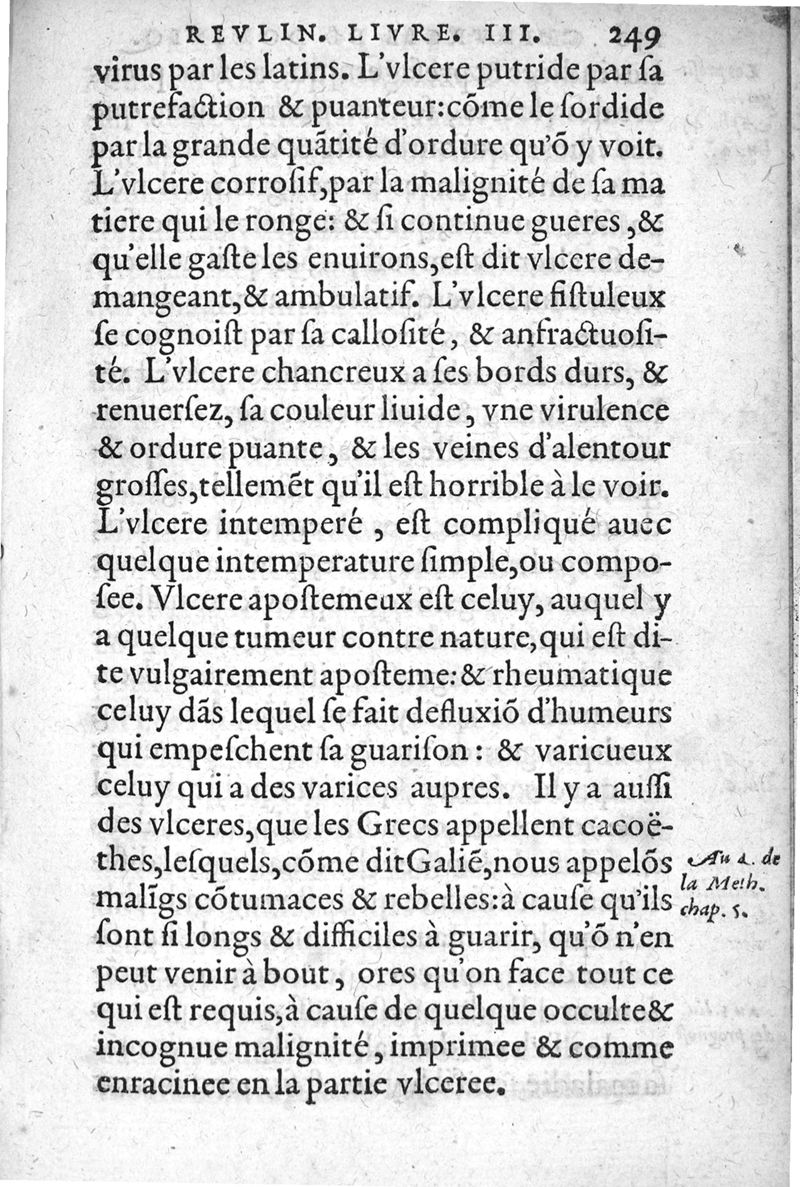 REVLIN. LIVRE. III. 249
virus par les latins. L'vlcere putride par ſa
putrefaction & puanteur: cõme le ſordide
par la grande quãtité d'ordure qu'õ y voit.
L'vlcere corroſif, par la malignité de ſa ma
tiere qui le ronge: & ſi continue gueres, &
qu'elle gaſte les enuirons, eſt dit vlcere de-
mangeant, & ambulatif. L'vlcere fiſtuleux
ſe cognoiſt par ſa calloſité, & anfractuoſi-
té. L'vlcere chancreux a ſes bords durs, &
renuerſez, ſa couleur liuide, vne virulence
& ordure puante, & les veines d'alentour
groſſes, tellemẽt qu'il eſt horrible à le voir.
L'vlcere intemperé, eſt compliqué auec
quelque intemperature ſimple, ou compo-
ſee. Vlcere apoſtemeux eſt celuy, auquel y
a quelque tumeur contre nature, qui eſt di-
te vulgairement apoſteme: & rheumatique
celuy dãs lequel ſe fait defluxiõ d'humeurs
qui empeſchent ſa guariſon: & varicueux
celuy qui a des varices aupres. Il y a auſſi
des vlceres, que les Grecs appellent cacoë-
thes, leſquels, cõme dit Galiẽ, nous appelõs
malĩgs cõtumaces & rebelles: à cauſe qu'ils
ſont ſi longs & difficiles à guarir, qu'õ n'en
peut venir à bout, ores qu'on face tout ce
qui eſt requis, à cauſe de quelque occulte &
incognue malignité, imprimee & comme
enracinee en la partie vlceree.
Au 4. de
la Meth.
chap. 5.